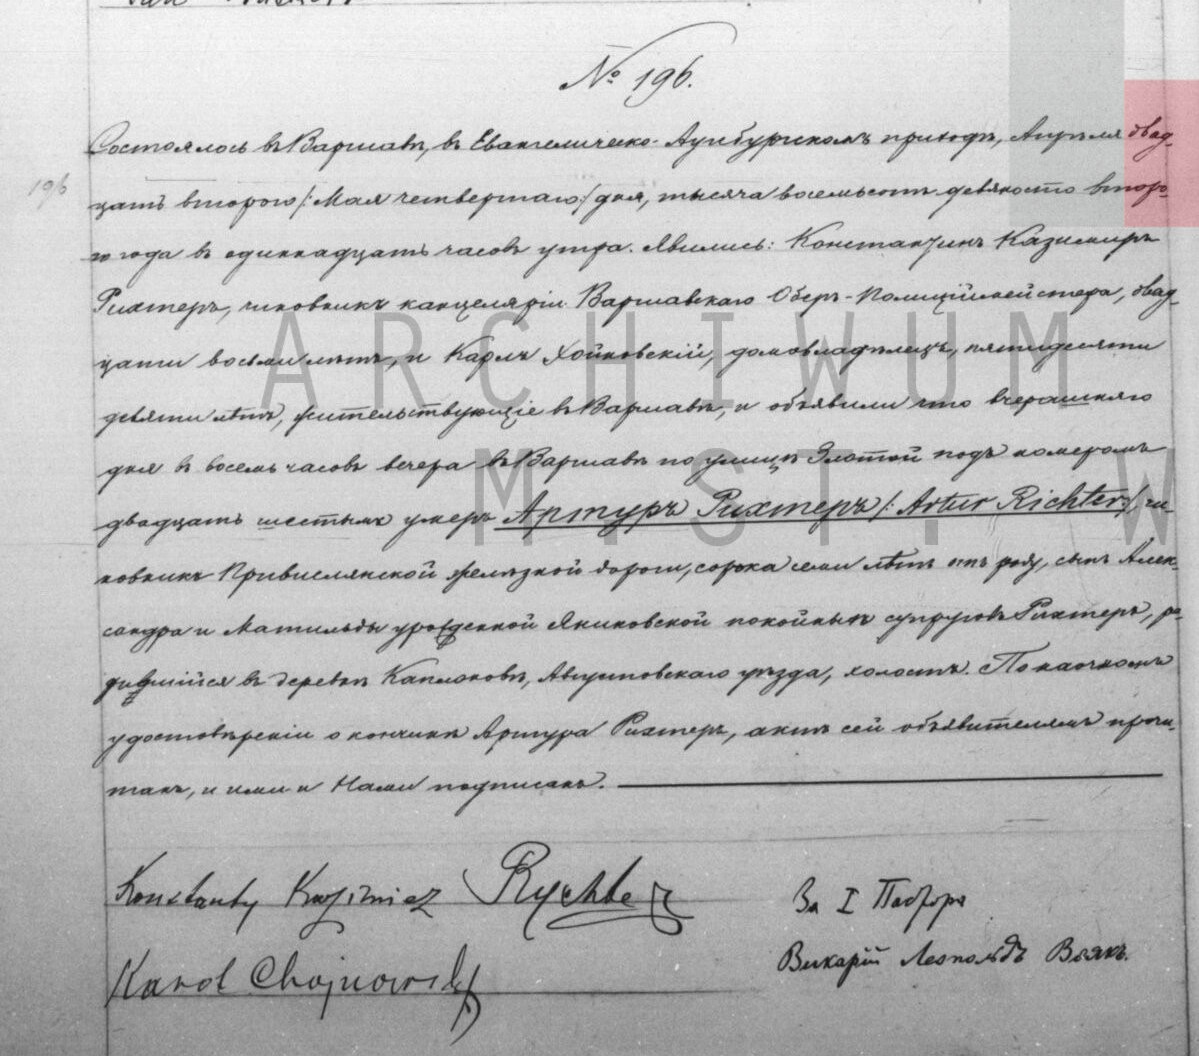 № 196.
Состоялось въ Варшавѣ, въ Евангелическо-Аугсбургскомъ приходѣ, Апрѣля двад-
196
цать втораго /:Мая четвертаго:/ дня, тысяча восемьсотъ девяносто второ-
го года въ одиннадцать часовъ утра. Явились: Константинъ Казимиръ
Рихтеръ, чиновникъ канцеляріи Варшавскаго Оберъ-Полиціймейстера, двад-
цати восьми лѣтъ, и Карлъ Хойновскій, домовладѣлецъ, пятидесяти
девяти лѣтъ, жительствующіе въ Варшавѣ, и объявили что вчерашняго
дня въ восемь часовъ вечера въ Варшавѣ по улицѣ Злотой подъ номеромъ
двадцать шестымъ умеръ Артуръ Рихтеръ /:Artur Richter:/, чи-
новникъ Привислянской желѣзной дороги, сорока семи лѣтъ отъ роду, сынъ Алек-
сандра и Матильды урожденной Яниковской покойныхъ супруговъ Рихтеръ, ро-
дившійся въ деревнѣ Августовскаго уѣзда, холостъ. По наочномъ
удостовѣреніи о кончинѣ Артура Рихтеръ, актъ сей объявителямъ прочи-
танъ, и ими и Нами подписанъ.
Konstanty Kazimierz Rychter
За I Пастора
Karol Chojnowski
Викарій Леопольдъ
ARCHIWUM
M ST. W